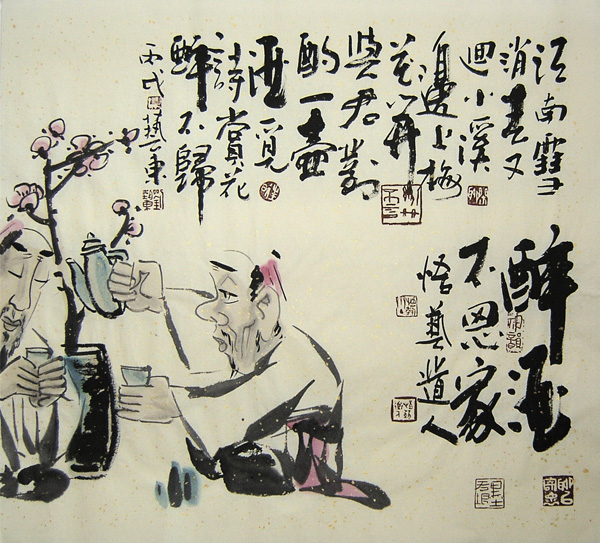 江南雪
消春又
迴小溪
邊上梅
花開
與君對
酌一壺
酒覓
詩賞花
醉不歸
丙戌
醉酒
不思家
悟藝道人